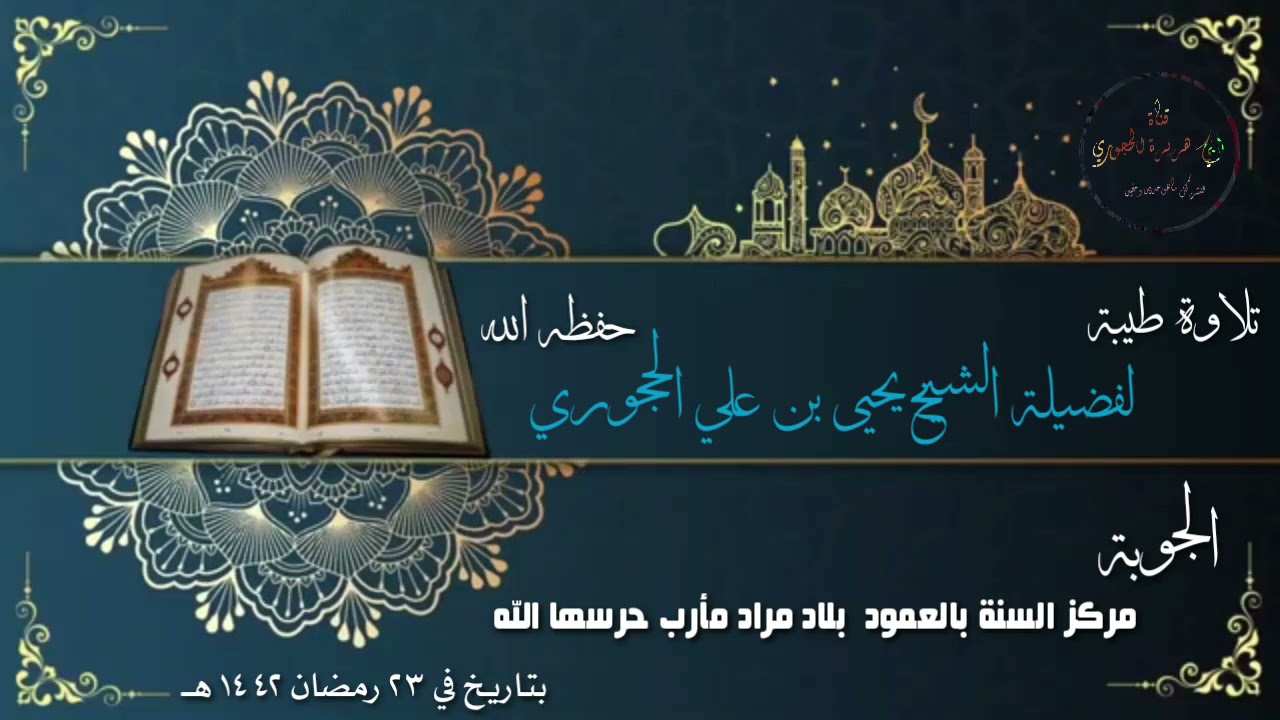 قناة
أبي هريرة الحجوري
تلاوة طيبة
حفظه الله
لفضيلة الشيخ يحيى بن علي الحجوري
الجوبة
مركز السنة بالعمود بلاد مراد مأرب حرسها الله
بتاريخ في ٢٣ رمضان ١٤٤٢ هـ